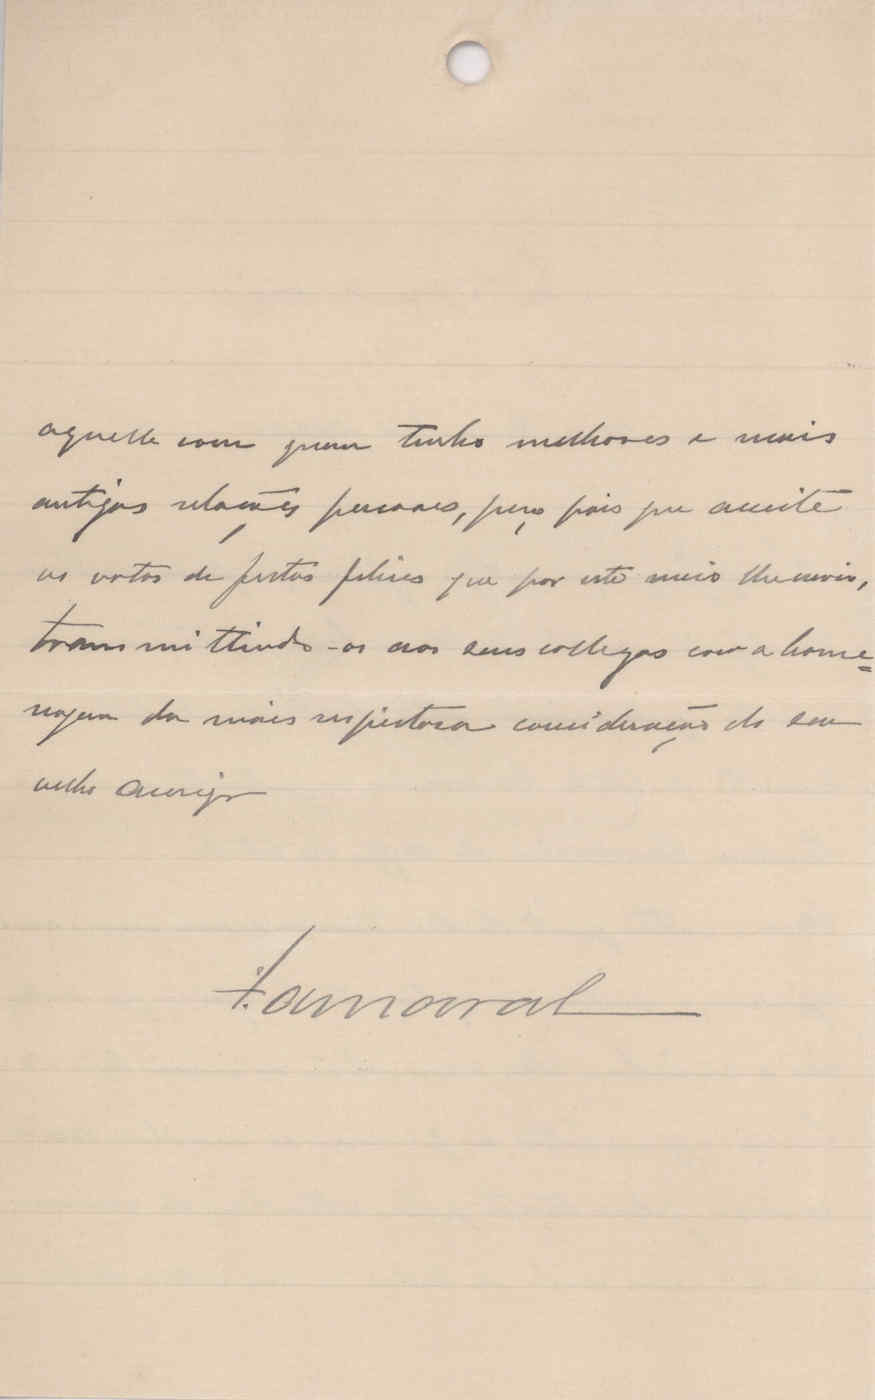 aquelle com quem tenho melhores e mais
antigas relações pessoaes, peço pois que acceite
os votos de festas felizes que por este meio lhe envio,
transmittindo-os aos seus collegas com a home=
nagem da mais respeitosa consideração do seu
velho amigo
F. amaral